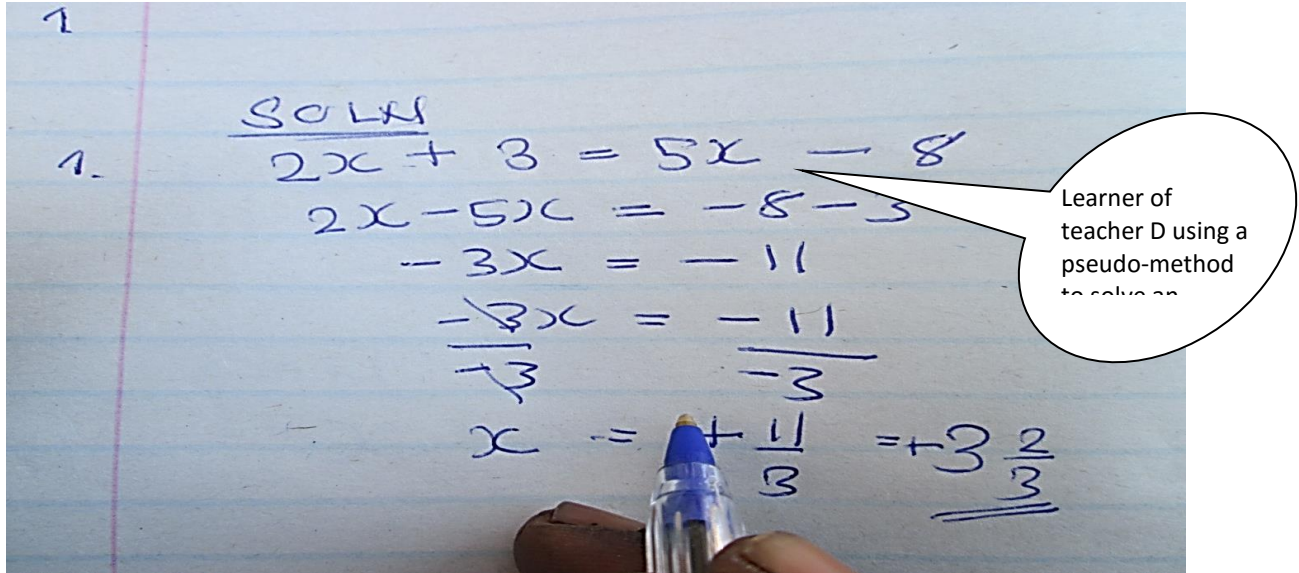 1
SOLN
1. 2x + 3 = 5x - 8
2x - 5x = -8 - 3
-3x = -11
-3x = -11
-3 -3
x = + 11/3 = +3 2/3
Learner of
teacher D using a
pseudo-method
to solve an